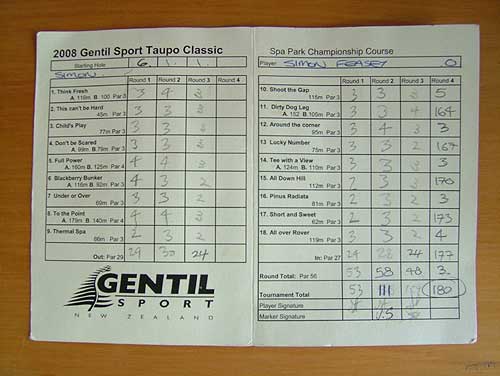 2008 Gentil Sport Taupo Classic
Starting Hole 6 1 1
SIMON Round 1 Round 2 Round 3
1. Think Fresh
A. 119m B. 100 Par 3 3 4 3
2. This can't be Hard
45m Par 3 3 3 3
3. Child's Play
77m Par 3 3 3 3
4. Don't be Scared
A. 99m B. 79m Par 3 3 3 3
5. Full Power
A. 160m B. 125m Par 4 4 4 3
6. Blackberry Bunker
A. 116m B. 92m Par 3 4 3 2
7. Under or Over
69m Par 3 3 3 2
8. To the Point
A. 179m B. 140m Par 4 4 4 3
9. Thermal Spa
86m Par 3 2 3 2
Out: Par 29 29 30 24
GENTIL
SPORT
NEW ZEALAND
Spa Park Championship Course
Player SIMON FEASEY 0
Round 1 Round 2 Round 3 Round 4
10. Shoot the Gap
115m Par 3 3 3 3 5
11. Dirty Dog Leg
A. 182 B. 106m Par 3 3 3 3 164
12. Around the corner
95m Par 3 3 4 3 3
13. Lucky Number
75m Par 3 3 3 2 167
14. Tee with a View
A. 124m B. 110m Par 3 3 3 3 3
15. All Down Hill
112m Par 3 2 3 3 170
16. Pinus Radiata
81m Par 3 2 3 2 3
17. Short and Sweet
62m Par 3 2 3 2 173
18. All over Rover
119m Par 3 3 3 2 4
In: Par 27 24 28 24 177
Round Total: Par 56 53 58 48 3
Tournament Total 53 111 180
Player Signature
Marker Signature